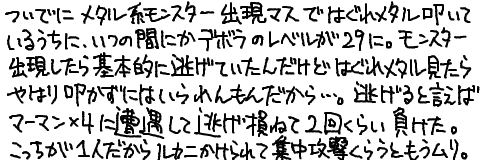 ついでに メタル系モンスター 出現マス ではぐれメタル叩いて
いるうちに、いつの間にかデボラのレベルが29に。モンスター
出現したら基本的に逃げていたんだけどはぐれメタル見たら
やはり叩かずにはいられんもんだから…。逃げると言えば
マーマン×4に遭遇して逃げ損ねて2回くらい負けた。
こっちが1人だからルカニかけられて集中攻撃くらうともうムリ。